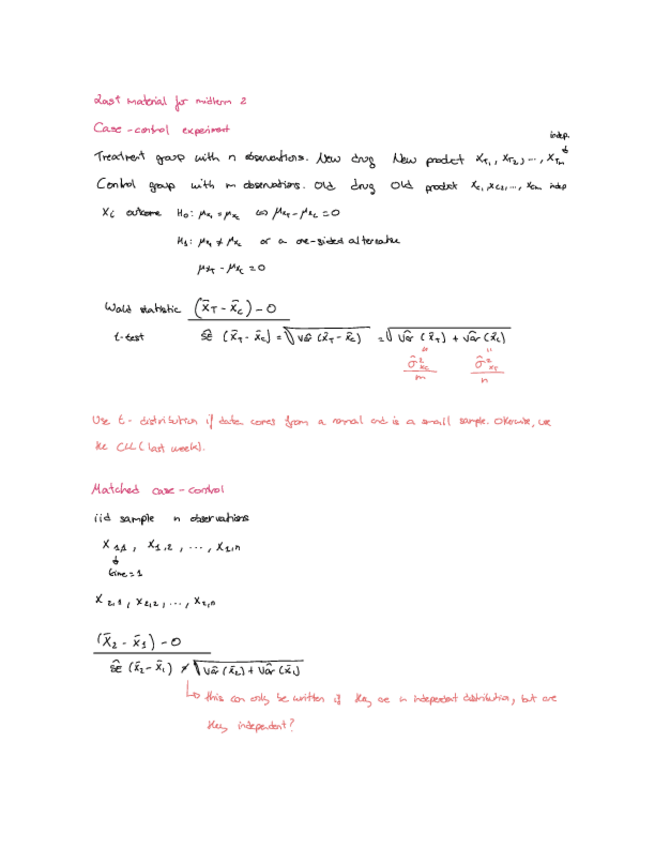 Last material for midterm 2
Case-control experiment
indep.
Treatment group with n observations. New drug New product X_T1, X_T2, ..., X_Tn
Control group with m observations. Old drug Old product X_C1, X_C2, ..., X_Cm indep
X_i outcome H_0: μ_XT = μ_XC ⇔ μ_XT - μ_XC = 0
H_1: μ_XT ≠ μ_XC or a one-sided alternative
μ_XT - μ_XC = 0
Wald statistic (X̄_T - X̄_C) - 0
t-test ŝe (X̄_T - X̄_C) = √Vâr (X̄_T - X̄_C) = √Vâr (X̄_T) + Vâr (X̄_C)
" "
σ̂²_XC σ̂²_XT
m n
Use t-distribution if data comes from a normal and is a small sample. Otherwise, use
the CLL (last week).
Matched case-control
iid sample n observations
X_1,1, X_1,2, ..., X_1,n
↓
time = 1
X_2,1, X_2,2, ..., X_2,n
(X̄_2 - X̄_1) - 0
ŝe (X̄_2 - X̄_1) ≠ √Vâr (X̄_2) + Vâr (X̄_1)
↳ this can only be written if they are in independent distribution, but are
they independent?